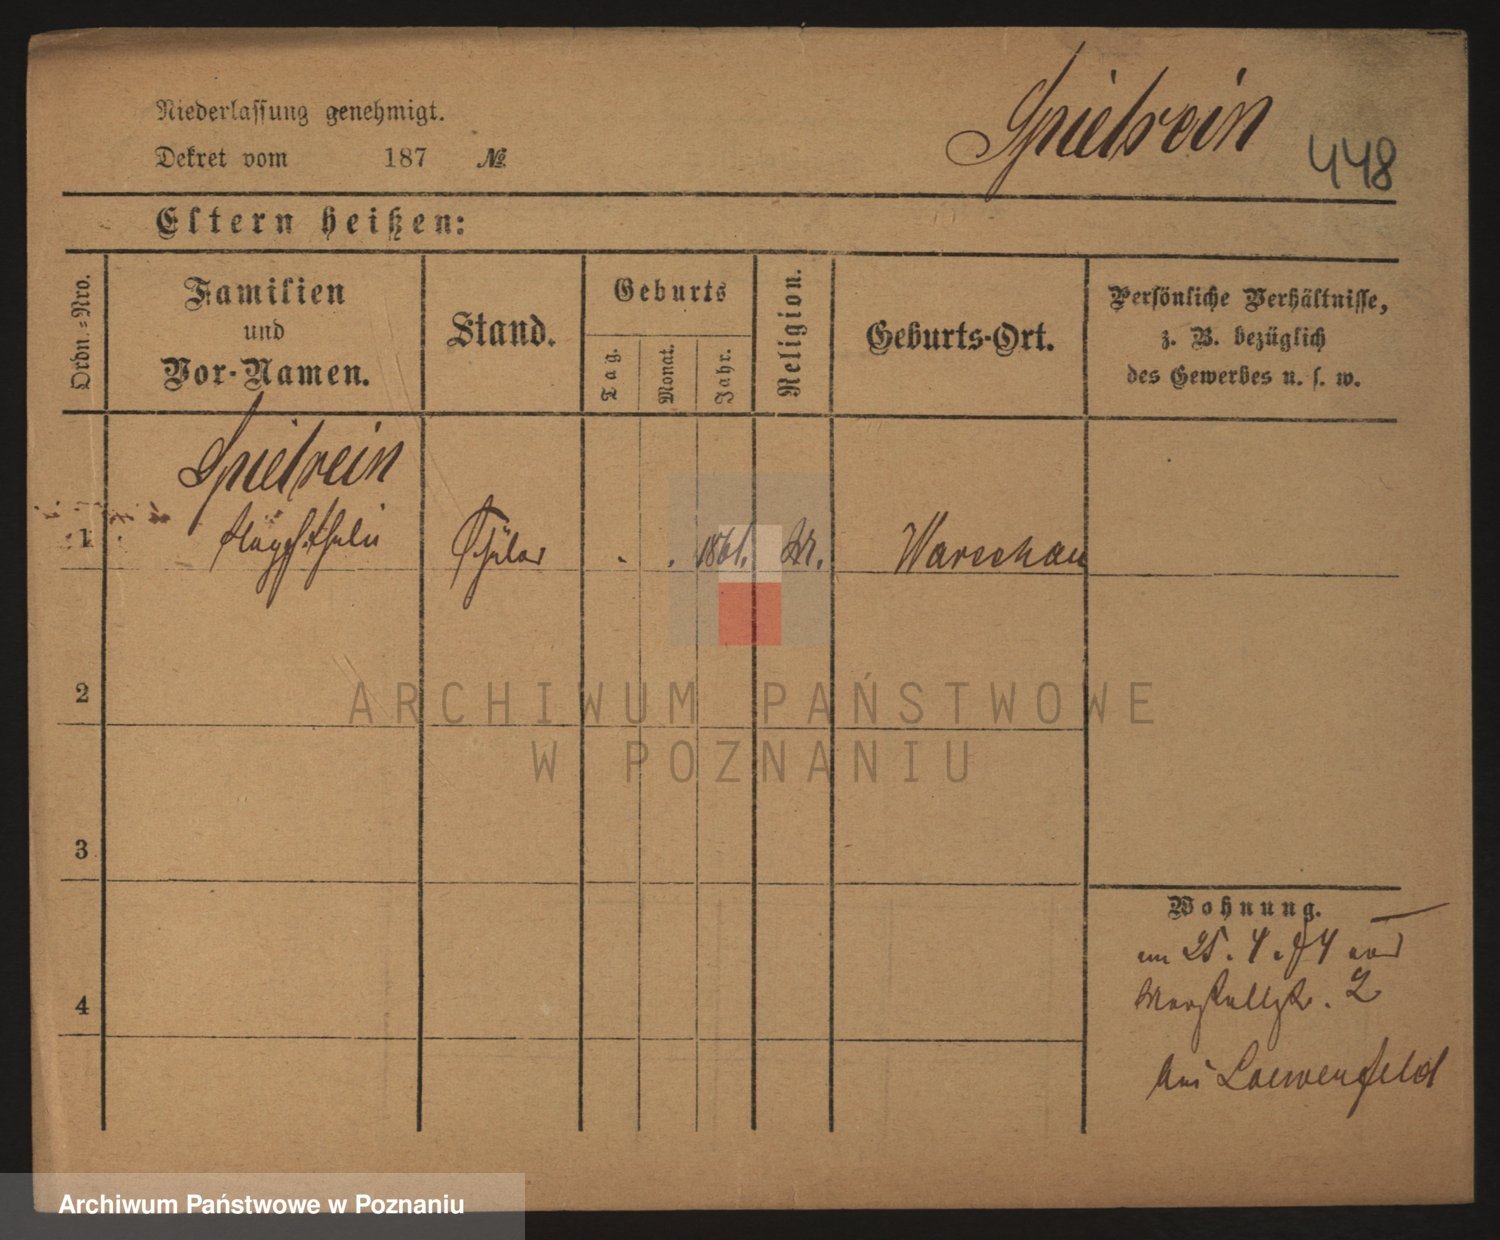 Niederlassung genehmigt.
Dekret vom 187 №
Spielrein
448
Eltern heißen:
Ordn.=Nro.
Familien
und
Vor-Namen.
Stand.
Geburts
Tag.
Monat.
Jahr.
Religion.
Geburts-Ort.
Persönliche Verhältnisse,
z. B. bezüglich
des Gewerbes u. s. w.
Spielrein
1 Schüler . . 1861. Warschau
2
3
4
Wohnung.
25. 4.
2
bei Loewenfeld
ARCHIWUM PAŃSTWOWE
W POZNANIU
Archiwum Państwowe w Poznaniu